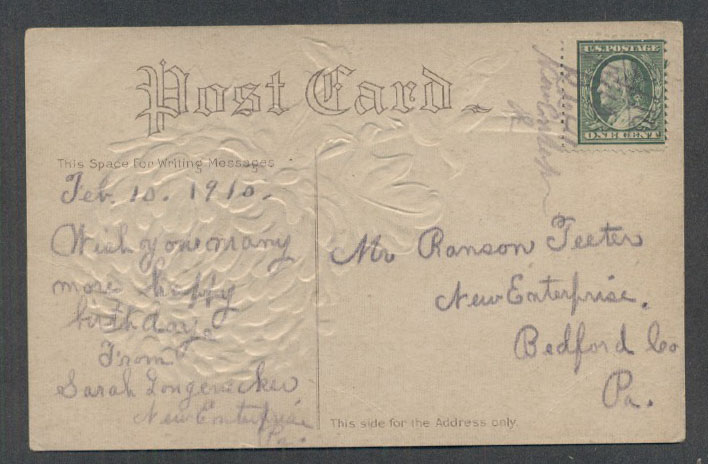 Post Card
U.S. POSTAGE
ONE CENT
This Space for Writing Messages
Feb. 10. 1910.
Wish you many
more happy
birthdays
From
Sarah Longenecker
New Enterprise
Pa.
Mr Ranson Teeter
New Enterprise,
Bedford Co
Pa.
This side for the Address only.